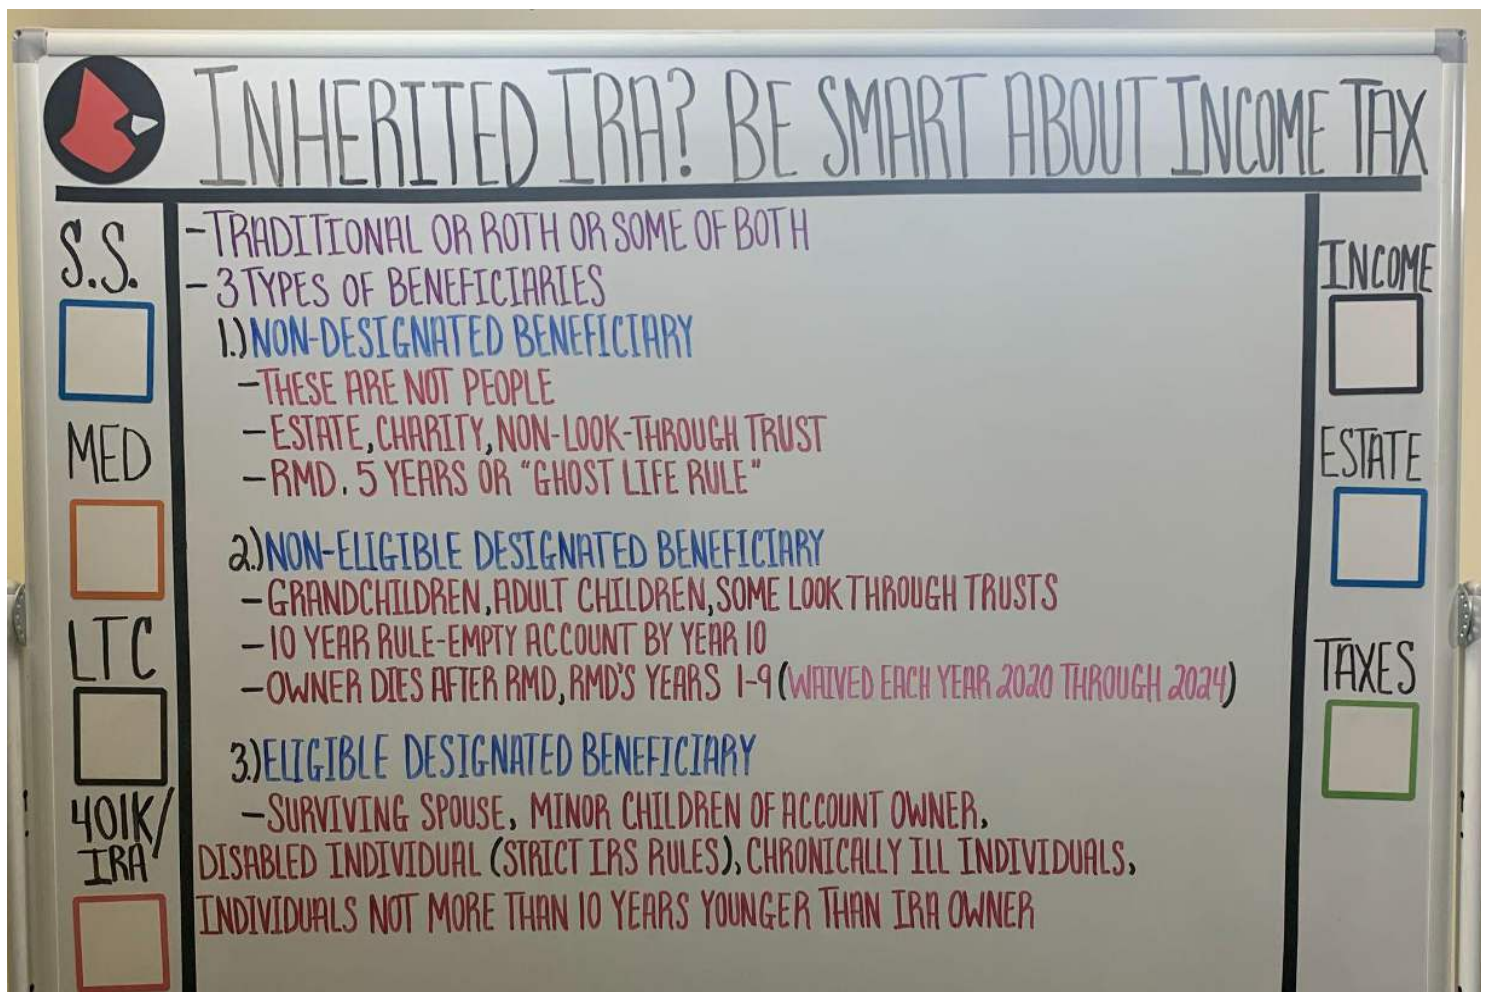 INHERITED IRA? BE SMART ABOUT INCOME TAX
S.S.
MED
LTC
401K/
IRA
- TRADITIONAL OR ROTH OR SOME OF BOTH
- 3 TYPES OF BENEFICIARIES
1.) NON-DESIGNATED BENEFICIARY
- THESE ARE NOT PEOPLE
- ESTATE, CHARITY, NON-LOOK-THROUGH TRUST
- RMD. 5 YEARS OR "GHOST LIFE RULE"
2.) NON-ELIGIBLE DESIGNATED BENEFICIARY
- GRANDCHILDREN, ADULT CHILDREN, SOME LOOK THROUGH TRUSTS
- 10 YEAR RULE-EMPTY ACCOUNT BY YEAR 10
- OWNER DIES AFTER RMD, RMD'S YEARS 1-9 (WAIVED EACH YEAR 2020 THROUGH 2024)
3.) ELIGIBLE DESIGNATED BENEFICIARY
- SURVIVING SPOUSE, MINOR CHILDREN OF ACCOUNT OWNER,
DISABLED INDIVIDUAL (STRICT IRS RULES), CHRONICALLY ILL INDIVIDUALS,
INDIVIDUALS NOT MORE THAN 10 YEARS YOUNGER THAN IRA OWNER
INCOME
ESTATE
TAXES